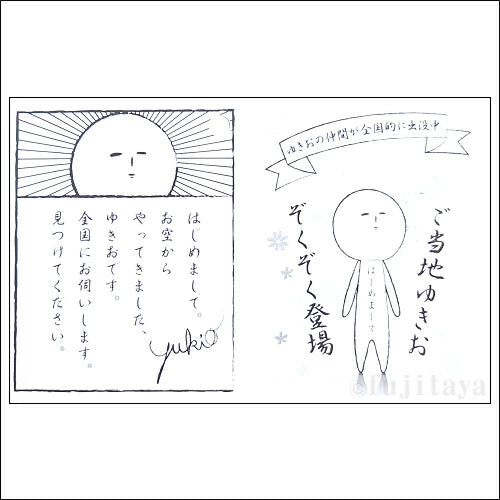 はじめまして。
お空から
やってきました、
ゆきおです。
全国にお伺いします。
見つけてください。
yukio
ゆきおの仲間が全国的に出没中
ご当地ゆきお
ぞくぞく登場
はじめまして
©fujitaya